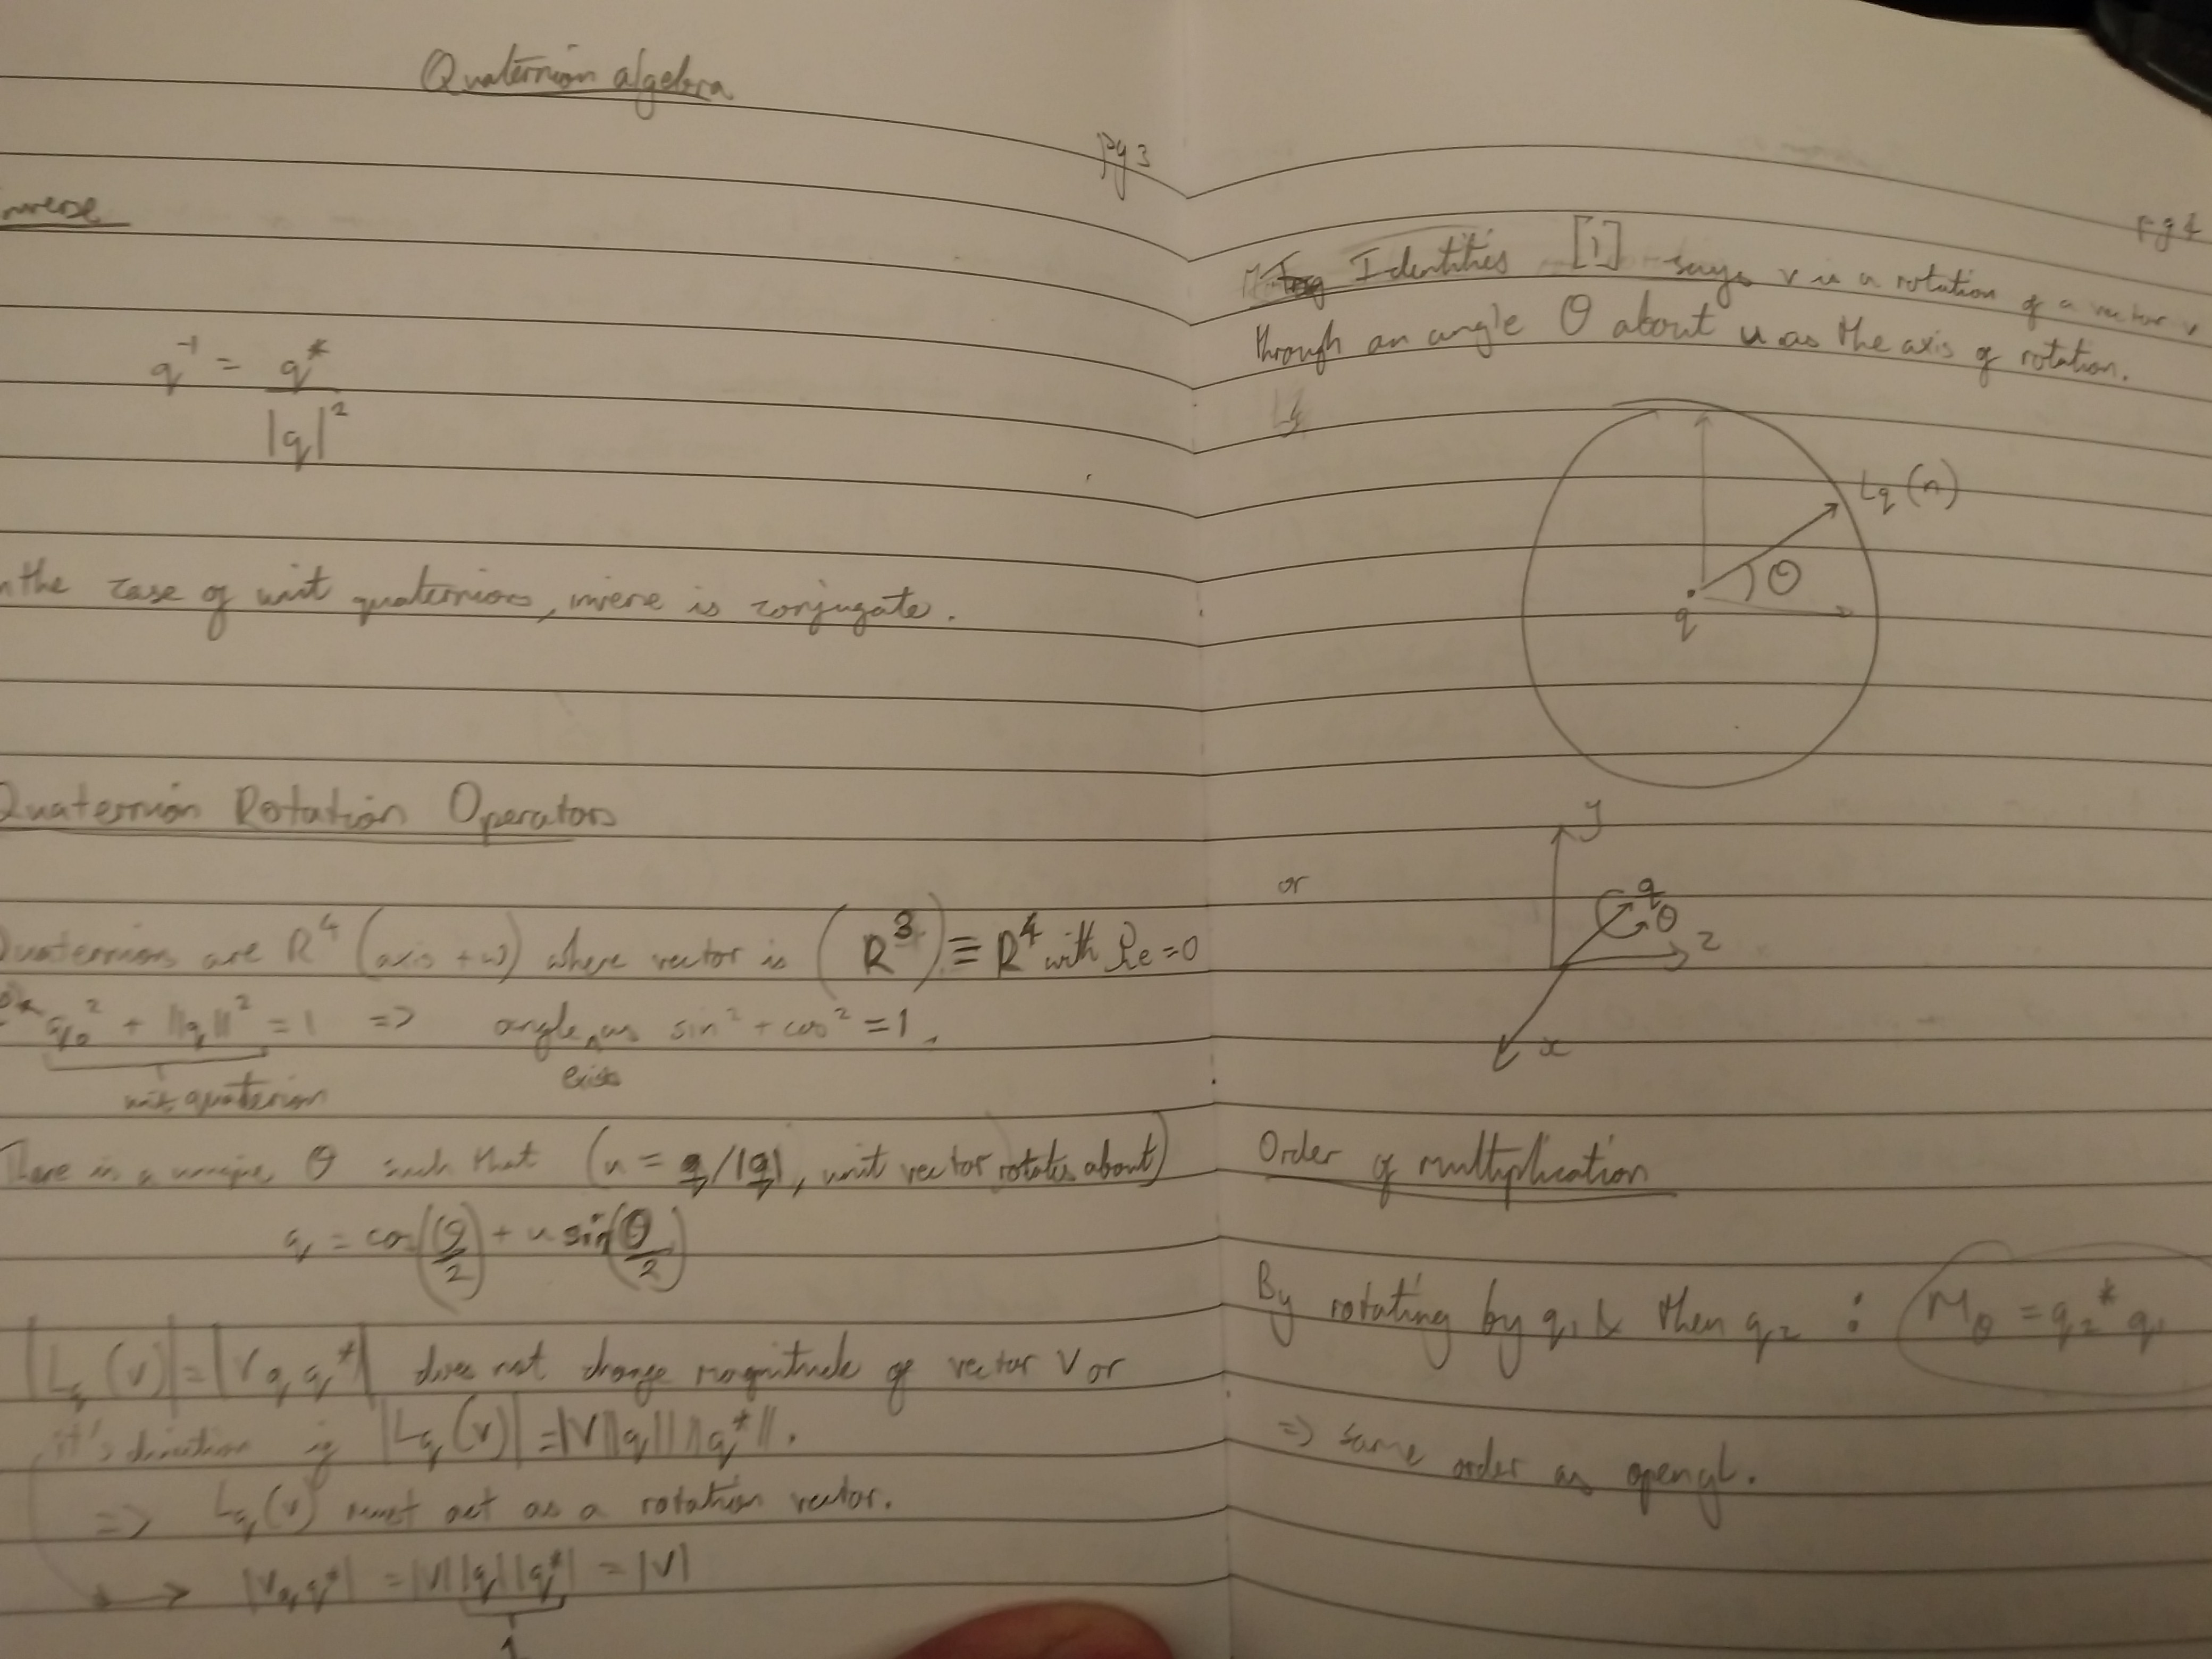 Quaternion algebra
pg 3
nverse
q⁻¹ = q* / |q|²
n the case of unit quaternions, inverse is conjugate.
Quaternion Rotation Operators
Quaternions are R⁴ (axis + ω) where vector is (R³) ≡ R⁴ with Re = 0
q₀² + ||q||² = 1 => angle exists as sin² + cos² = 1.
unit quaternion
There is a unique θ such that (u = q/|q|, unit vector rotates about)
q = cos(θ/2) + u sin(θ/2)
|Lq(v)| = |v q q*| does not change magnitude of vector v or
it's direction if |Lq(v)| = |v||q|| ||q*||.
=> Lq(v) must act as a rotation vector.
→ |v q q*| = |v||q||q*| = |v|
1
pg 4
Identities [1] says v is a rotation of a vector v
through an angle θ about u as the axis of rotation.
Lq
Lq(n)
θ
q
or
y
q
θ
z
x
Order of multiplication
By rotating by q₁ & then q₂ : M₀ = q₂* q₁
=> same order as opengl.